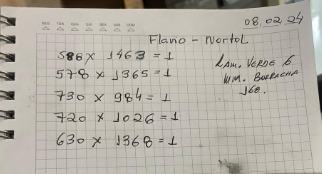 08.02.24
Flavio - Nortol
586 x 1463 = 1
578 x 1365 = 1
730 x 984 = 1
720 x 1026 = 1
630 x 1368 = 1
LAM. VERDE 6
MM. BORRACHA
160.